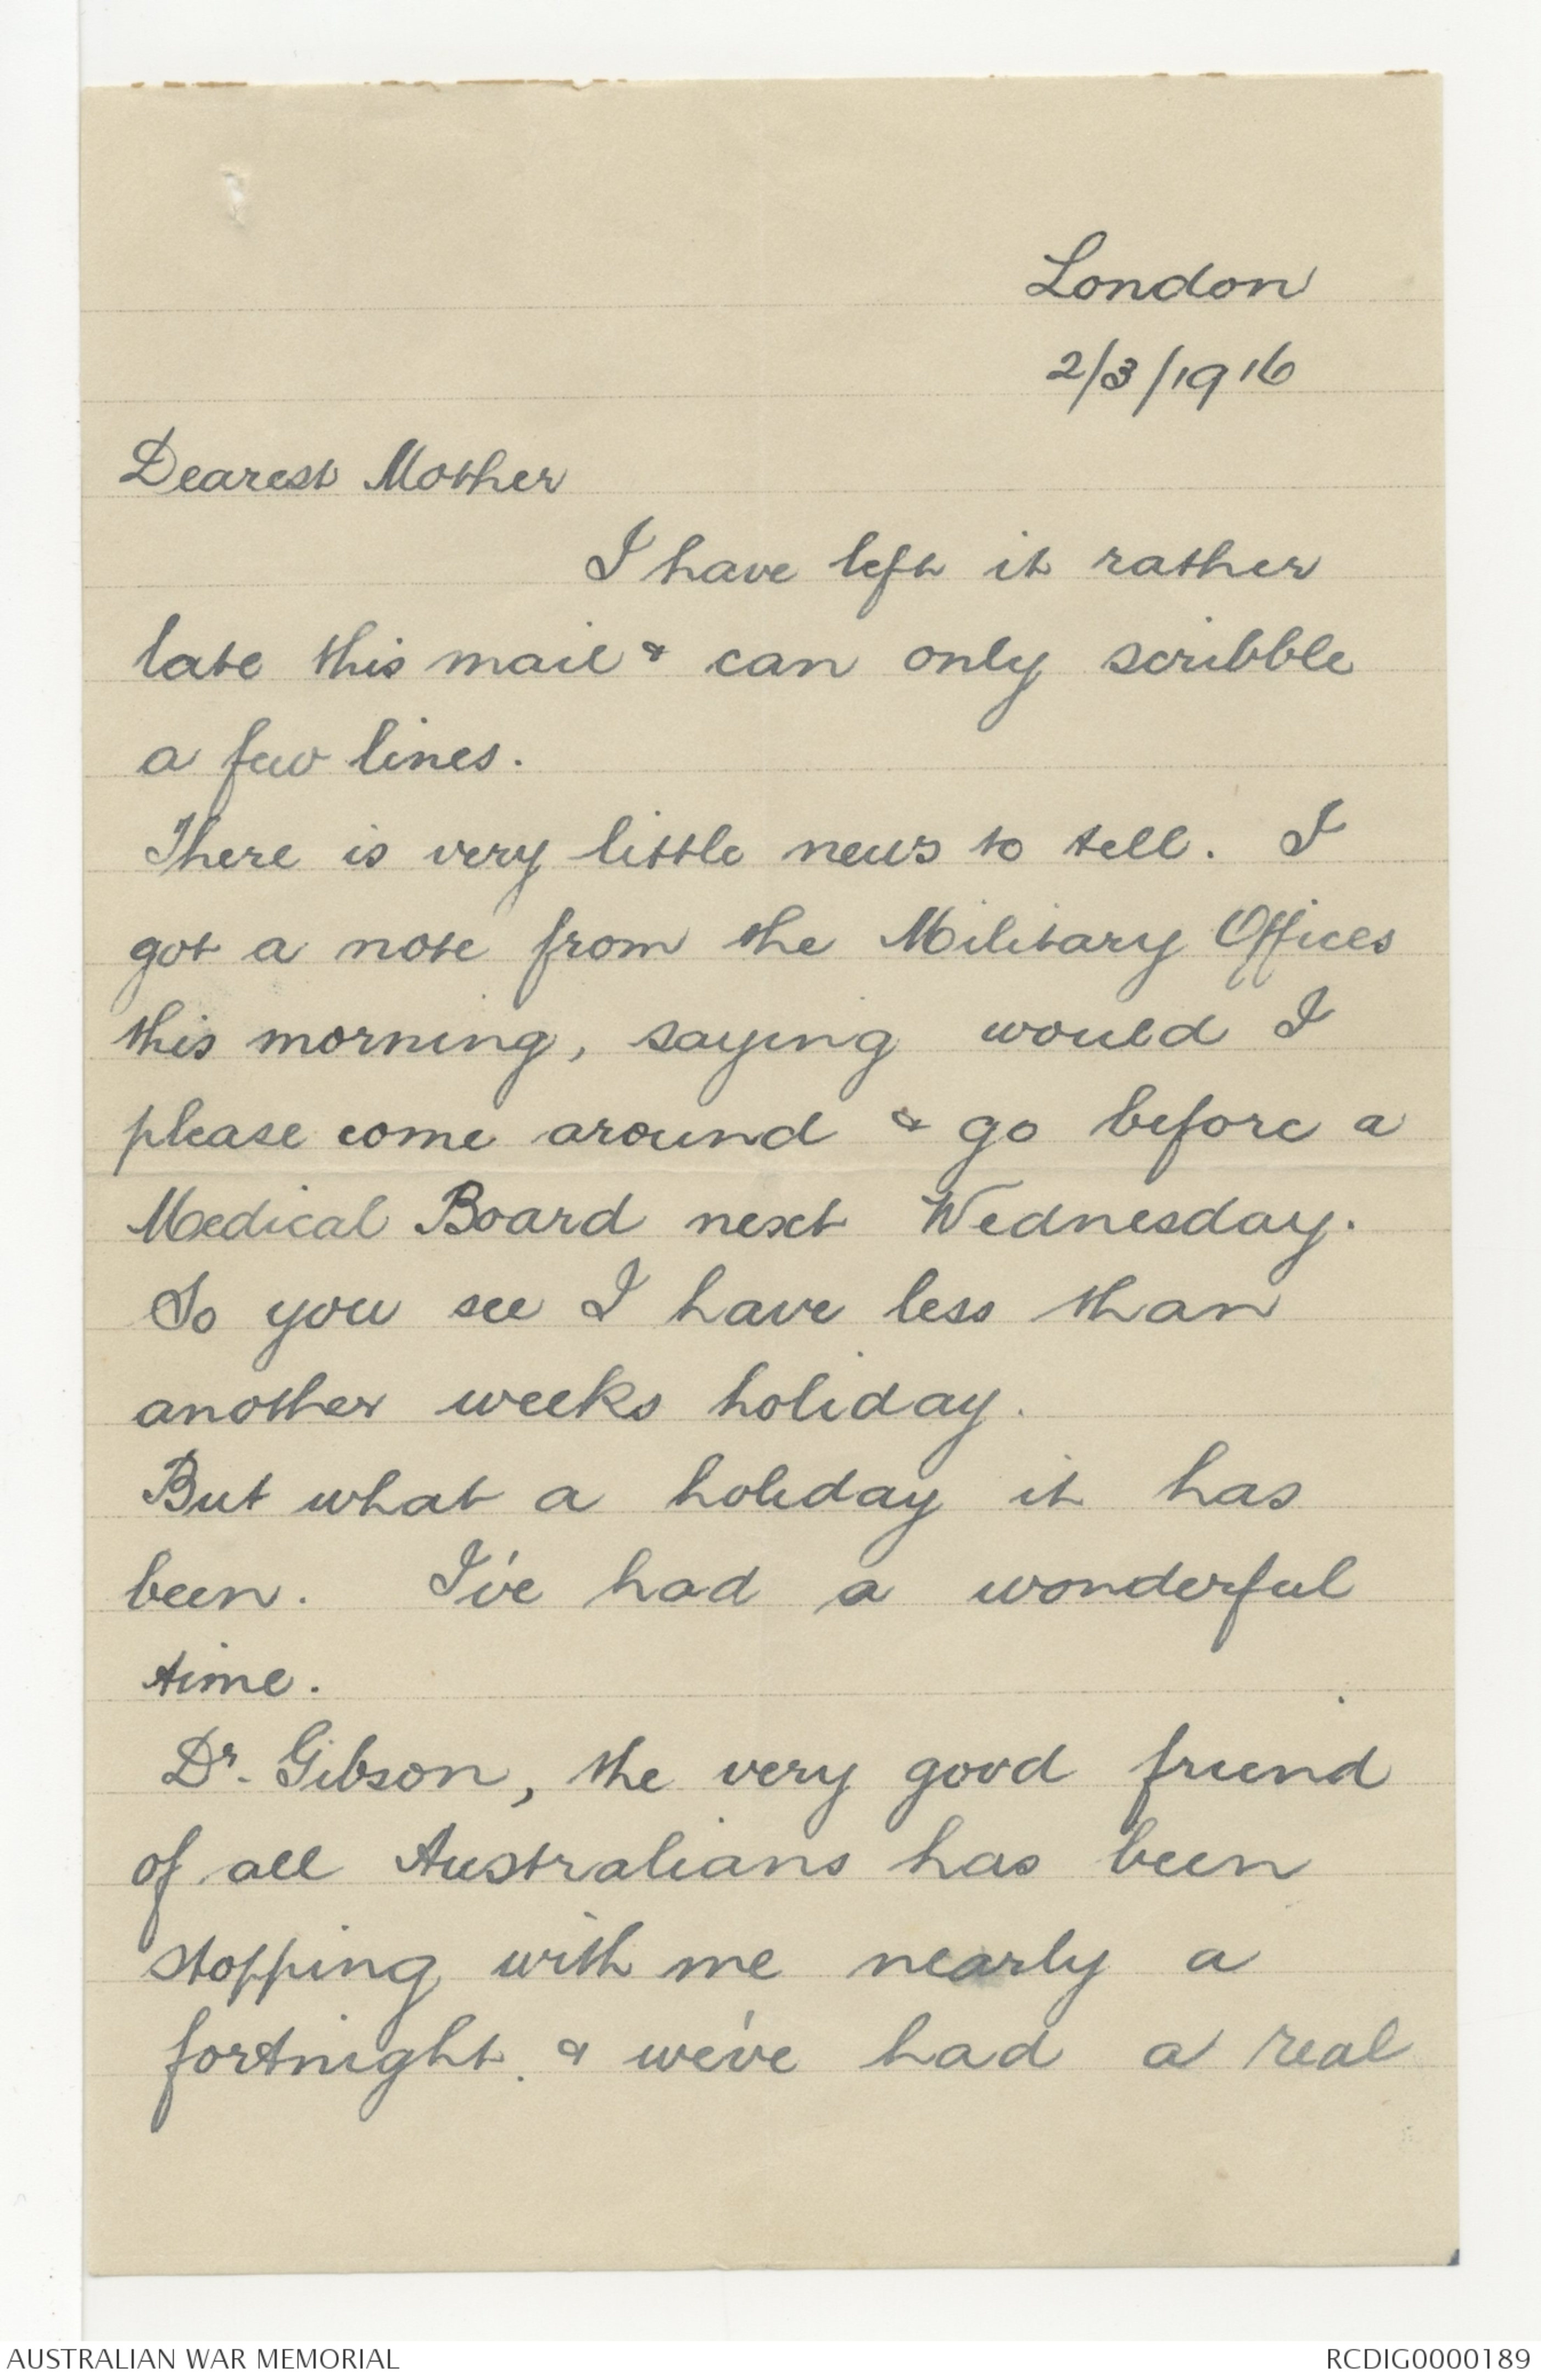 London
2/3/1916
Dearest Mother
I have left it rather
late this mail & can only scribble
a few lines.
There is very little news to tell. I
got a note from the Military Offices
this morning, saying would I
please come around & go before a
Medical Board next Wednesday.
So you see I have less than
another weeks holiday.
But what a holiday it has
been. I've had a wonderful
time.
Dr. Gibson, the very good friend
of all Australians has been
stopping with me nearly a
fortnight. & we've had a real
AUSTRALIAN WAR MEMORIAL
RCDIG0000189